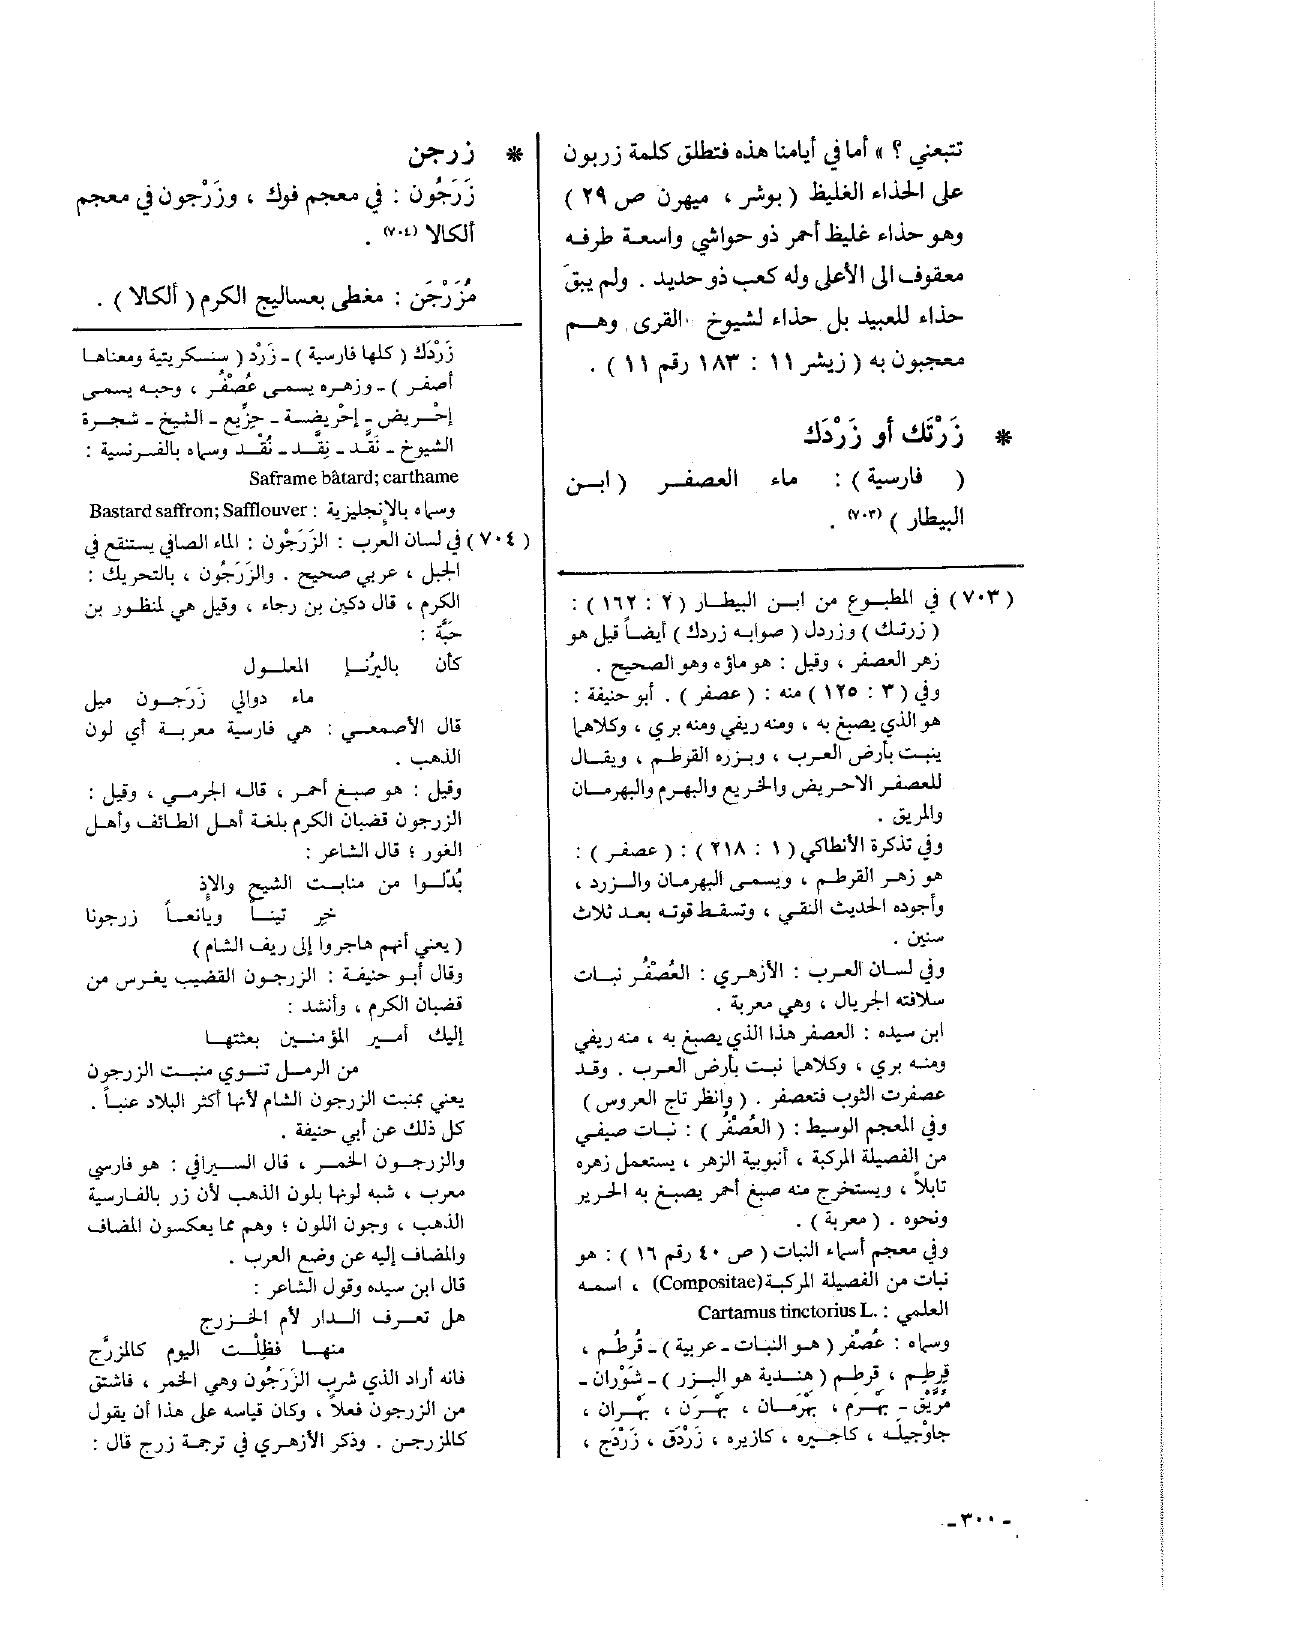 تتبعني ؟ » أما في أيامنا هذه فتطلق كلمة زربون
على الحذاء الغليظ ( بوشر ، ميهرن ص ٢٩ )
وهو حذاء غليظ أحمر ذو حواشي واسعة طرفه
معقوف الى الأعلى وله كعب ذو حديد . ولم يبقَ
حذاء للعبيد بل حذاء لشيوخ القرى وهم
معجبون به ( زيشر ١١ : ١٨٣ رقم ١١ ) .
* زَرْتَك أو زَرْدَك
( فارسية ) : ماء العصفر ( ابن
البيطار ) (٧٠٣) .
(٧٠٣) في المطبوع من ابن البيطار ( ٢ : ١٦٢ ) :
( زرتك ) وزردل ( صوابه زردك ) أيضاً قيل هو
زهر العصفر ، وقيل : هو ماؤه وهو الصحيح .
وفي ( ٣ : ١٢٥ ) منه : ( عصفر ) . أبو حنيفة :
هو الذي يصبغ به ، ومنه ريفي ومنه بري ، وكلاهما
ينبت بأرض العرب ، وبزره القرطم ، ويقال
للعصفر الاحريض والخريع والبهرم والبهرمان
والمريق .
وفي تذكرة الأنطاكي ( ١ : ٢١٨ ) : ( عصفر ) :
هو زهر القرطم ، ويسمى البهرمان والزرد ،
وأجوده الحديث النقي ، وتسقط قوته بعد ثلاث
سنين .
وفي لسان العرب : الأزهري : العُصْفُر نبات
سلافته الجريال ، وهي معربة .
ابن سيده : العصفر هذا الذي يصبغ به ، منه ريفي
ومنه بري ، وكلاهما نبت بأرض العرب . وقد
عصفرت الثوب فتعصفر . ( وانظر تاج العروس )
وفي المعجم الوسيط : ( العُصْفُر ) : نبات صيفي
من الفصيلة المركبة ، أنبوبية الزهر ، يستعمل زهره
تابلاً ، ويستخرج منه صبغ أحمر يصبغ به الحرير
ونحوه . ( معربة ) .
وفي معجم أسماء النبات ( ص ٤٠ رقم ١٦ ) : هو
نبات من الفصيلة المركبة (Compositae) ، اسمه
العلمي : Cartamus tinctorius L.
وسماه : عُصْفُر ( هو النبات ـ عربية ) ـ قُرطُم ،
قِرطِم ، قرطم ( هندية هو البزر ) ـ شَوْران ـ
مُرَّيْق ـ بهرم ، بهرمان ، بَهْرَن ، بَهْران ،
جاوْجيله ، كاجيره ، كازيره ، زَرْدَق ، زَرْدَج ،
* زرجن
زَرَجُون : في معجم فوك ، وزَرْجون في معجم
ألكالا (٧٠٤) .
مُزَرْجَن : مغطى بعساليج الكرم ( ألكالا ) .
زَرْدَك ( كلها فارسية ) ـ زَرْد ( سنسكريتية ومعناها
أصفر ) ـ وزهره يسمى عُصْفُر ، وحبه يسمى
إحْريض ـ إحْريضة ـ خِرِّيع ـ الشيخ ـ شجرة
الشيوخ ـ نَقَد ـ نِقَد ـ نُقْد وسماه بالفرنسية :
Saframe bâtard; carthame
وسماه بالإنجليزية : Bastard saffron; Safflouver
(٧٠٤) في لسان العرب : الزَرَجُون : الماء الصافي يستنقع في
الجبل ، عربي صحيح . والزَرَجُون ، بالتحريك :
الكرم ، قال دكين بن رجاء ، وقيل هي لمنظور بن
حَبَّة :
كأن باليُرَنَّإ المعلول
ماء دوالي زَرَجون ميل
قال الأصمعي : هي فارسية معربة أي لون
الذهب .
وقيل : هو صبغ أحمر ، قاله الجرمي ، وقيل :
الزرجون قضبان الكرم بلغة أهل الطائف وأهل
الغور ؛ قال الشاعر :
بُدّلوا من منابت الشيح والإذ
خِر تيناً ويانعاً زرجونا
( يعني أنهم هاجروا إلى ريف الشام )
وقال أبو حنيفة : الزرجون القضيب يغرس من
قضبان الكرم ، وأنشد :
إليك أمير المؤمنين بعثتها
من الرمل تنوي منبت الزرجون
يعني بمنبت الزرجون الشام لأنها أكثر البلاد عنباً .
كل ذلك عن أبي حنيفة .
والزرجون الخمر ، قال السيرافي : هو فارسي
معرب ، شبه لونها بلون الذهب لأن زر بالفارسية
الذهب ، وجون اللون ؛ وهم مما يعكسون المضاف
والمضاف إليه عن وضع العرب .
قال ابن سيده وقول الشاعر :
هل تعرف الدار لأم الخزرج
منها فظِلْت اليوم كالمزرَّج
فانه أراد الذي شرب الزَرَجُون وهي الخمر ، فاشتق
من الزرجون فعلاً ، وكان قياسه على هذا أن يقول
كالمزرجن . وذكر الأزهري في ترجمة زرج قال :
ـ ٣٠٠ ـ